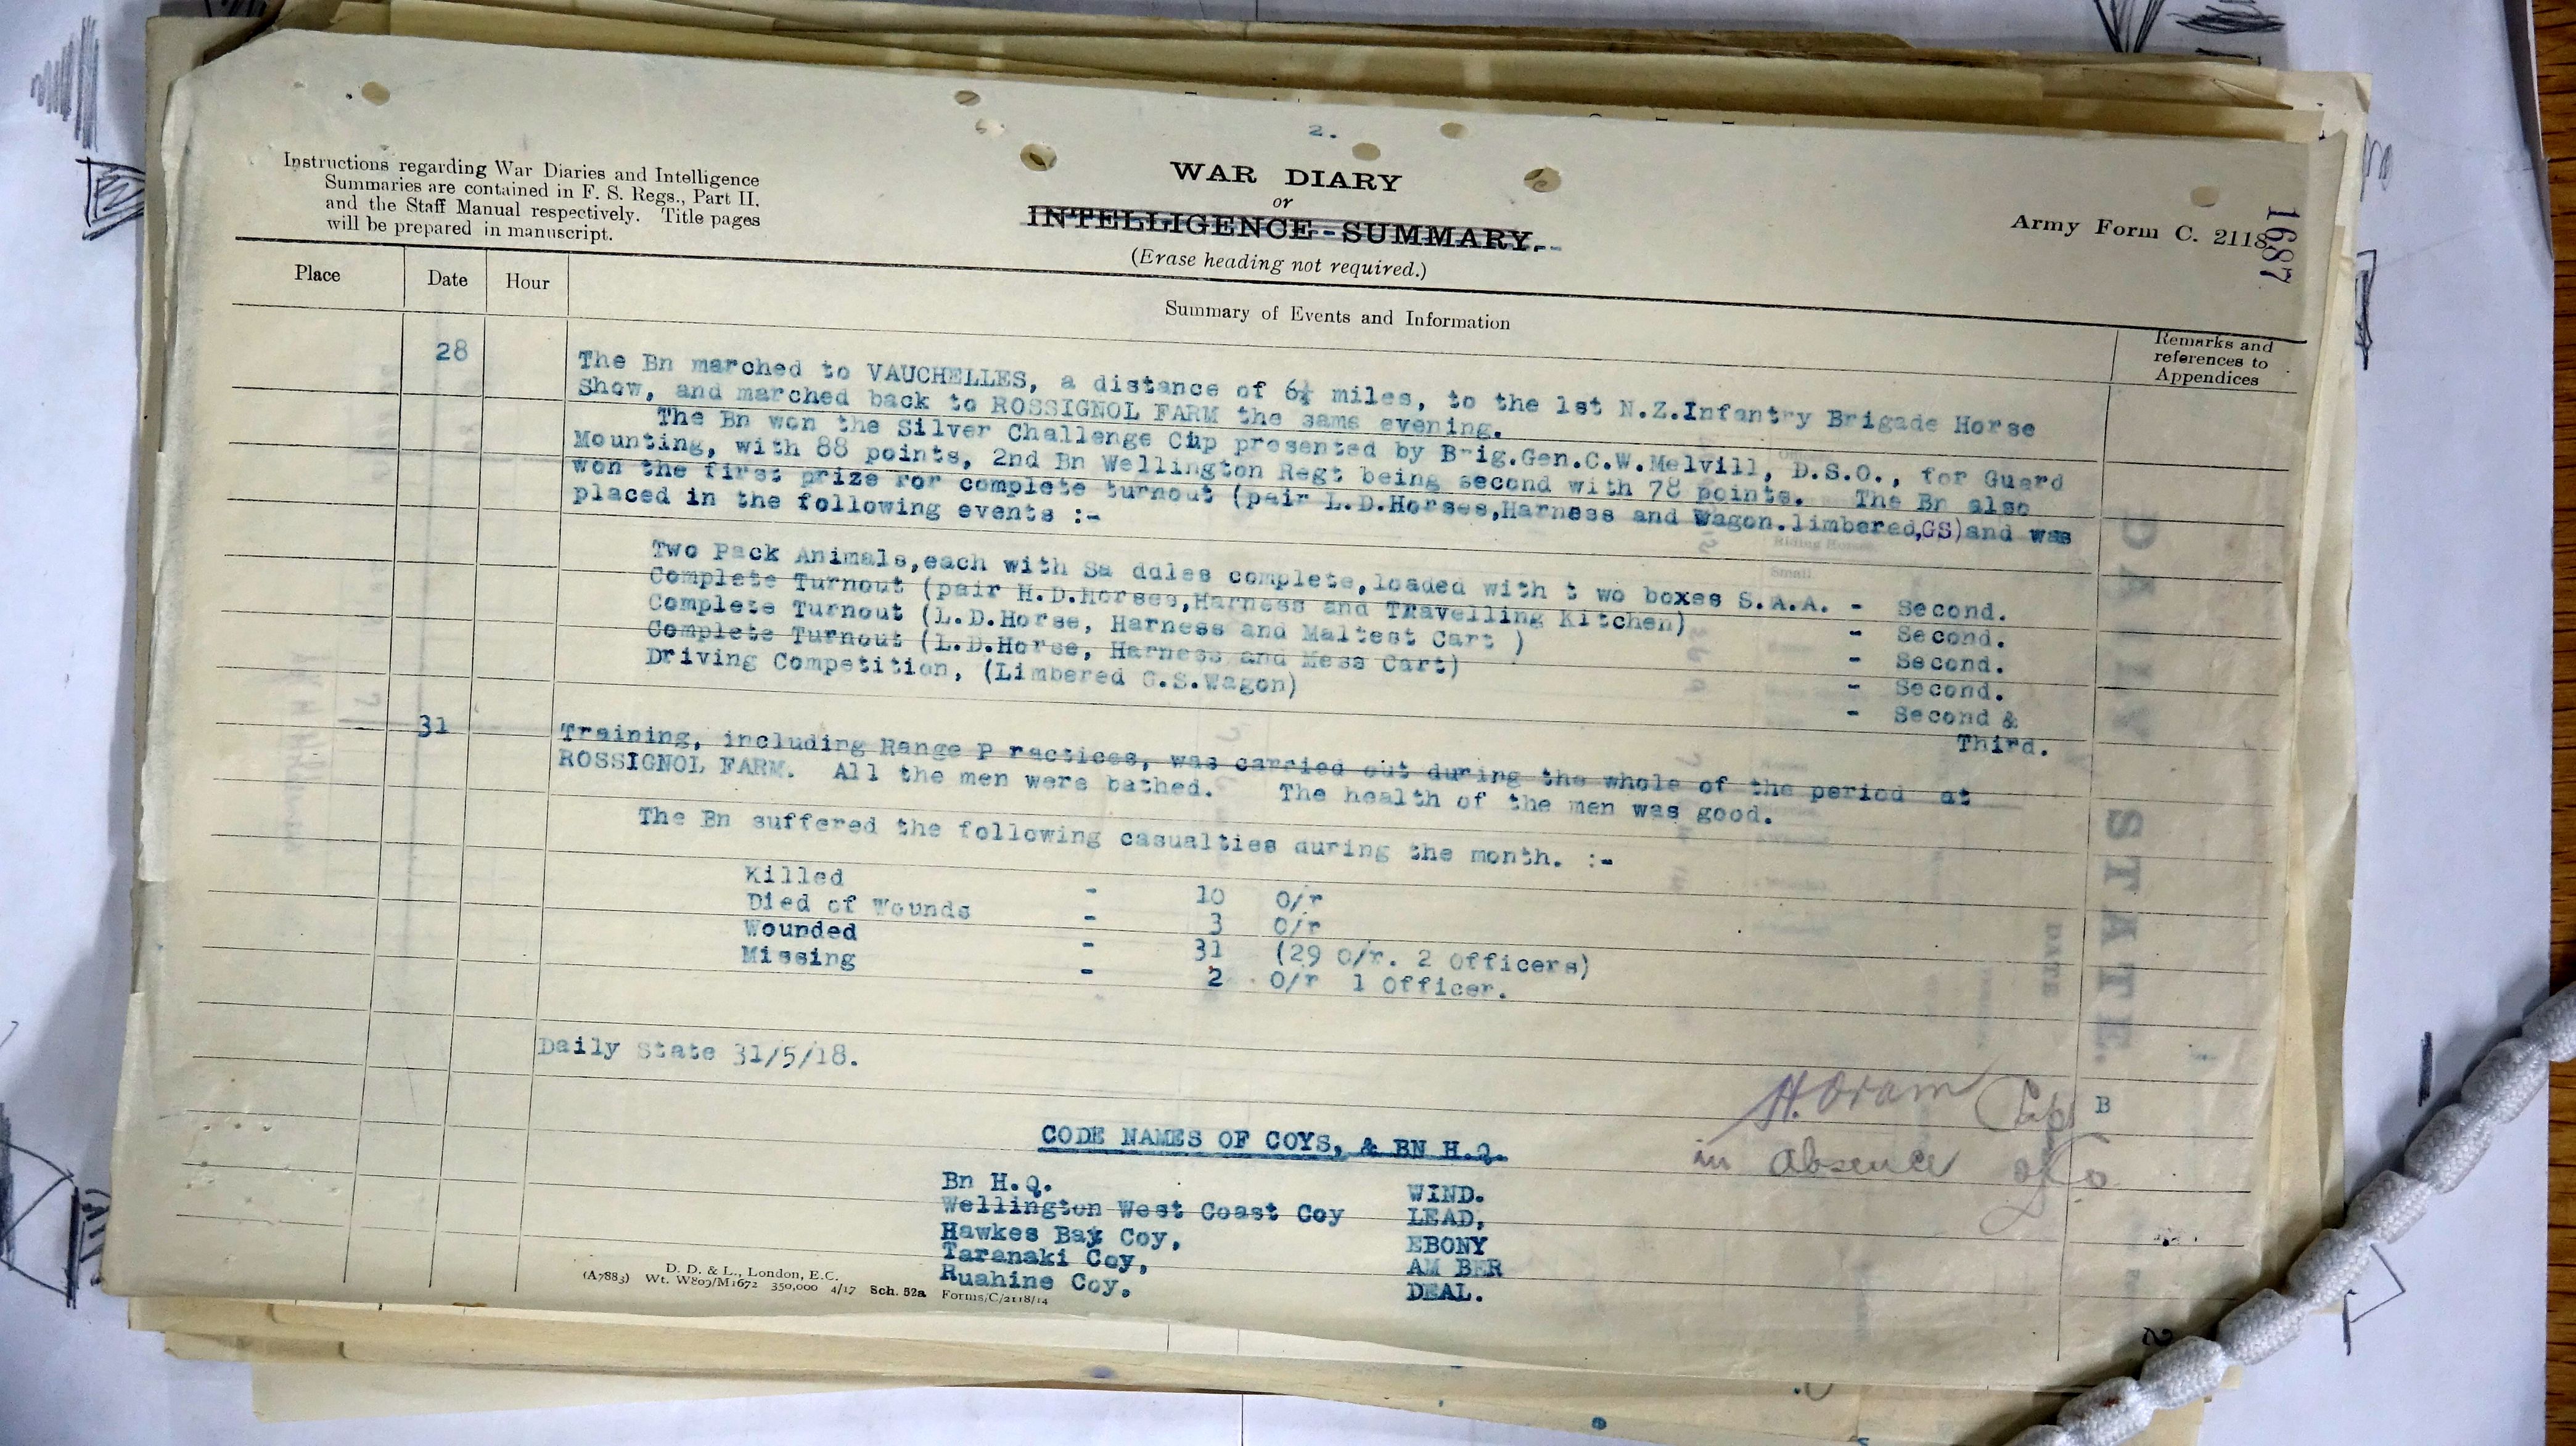 2.
Instructions regarding War Diaries and Intelligence
Summaries are contained in F. S. Regs., Part II.
and the Staff Manual respectively. Title pages
will be prepared in manuscript.
WAR DIARY
or
INTELLIGENCE SUMMARY.
(Erase heading not required.)
Army Form C. 2118.
1687
Place Date Hour Summary of Events and Information Remarks and
references to
Appendices
28 The Bn marched to VAUCHELLES, a distance of 6½ miles, to the 1st N.Z.Infantry Brigade Horse
Show, and marched back to ROSSIGNOL FARM the same evening.
The Bn won the Silver Challenge Cup presented by Brig.Gen.C.W.Melvill, D.S.O., for Guard
Mounting, with 88 points, 2nd Bn Wellington Regt being second with 78 points. The Bn also
won the first prize for complete turnout (pair L.D.Horses,Harness and Wagon.limbered,GS)and was
placed in the following events :-
Two Pack Animals,each with Sa ddles complete,loaded with t wo boxes S.A.A. - Second.
Complete Turnout (pair H.D.Horses,Harness and Travelling Kitchen) - Second.
Complete Turnout (L.D.Horse, Harness and Maltest Cart ) - Second.
Complete Turnout (L.D.Horse, Harness and Mess Cart) - Second.
Driving Competition, (Limbered G.S.Wagon) - Second &
Third.
31 Training, including Range P ractices, was carried out during the whole of the period at
ROSSIGNOL FARM. All the men were bathed. The health of the men was good.
The Bn suffered the following casualties during the month. :-
Killed - 10 O/r
Died of Wounds - 3 O/r
Wounded - 31 (29 O/r. 2 Officers)
Missing - 2 O/r 1 Officer.
Daily State 31/5/18. B
H. Oram Cap
in absence of Co
CODE NAMES OF COYS, & BN H.Q.
Bn H.Q. WIND.
Wellington West Coast Coy LEAD,
Hawkes Bay Coy, EBONY
Taranaki Coy, AM BER
Ruahine Coy. DEAL.
D. D. & L., London, E.C.
(A7883) Wt. W809/M1672 350,000 4/17 Sch. 52a Forms/C/2118/14
DAILY STATE.
DATE